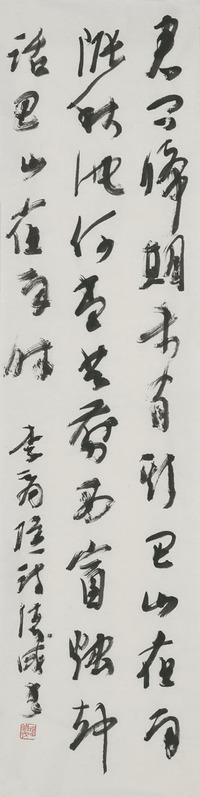 君問歸期未有期巴山夜雨
漲秋池何當共剪西窗燭卻
話巴山夜雨時
李商隱詩書